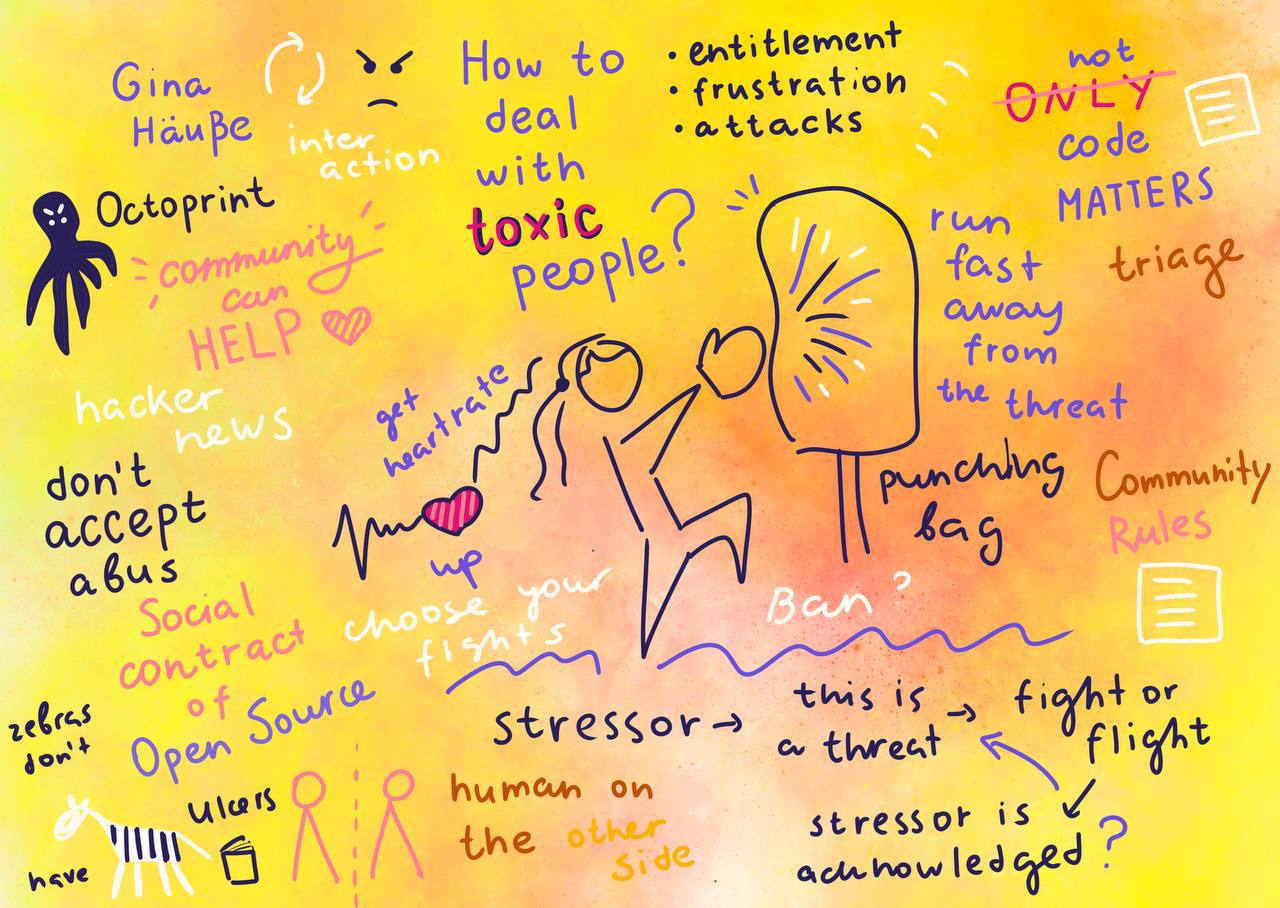 Gina
Häuße
inter
action
How to
deal
with
toxic
people?
• entitlement
• frustration
• attacks
not
ONLY
code
MATTERS
triage
Octoprint
community
can
HELP
hacker
news
don't
accept
abus
get
heartrate
up
run
fast
away
from
the threat
punching
bag
Community
Rules
Social
contract
of
Open Source
choose your
fights
Ban?
zebras
don't
have
ulcers
human on
the other
side
stressor →
this is
a threat →
fight or
flight
stressor is
acknowledged?